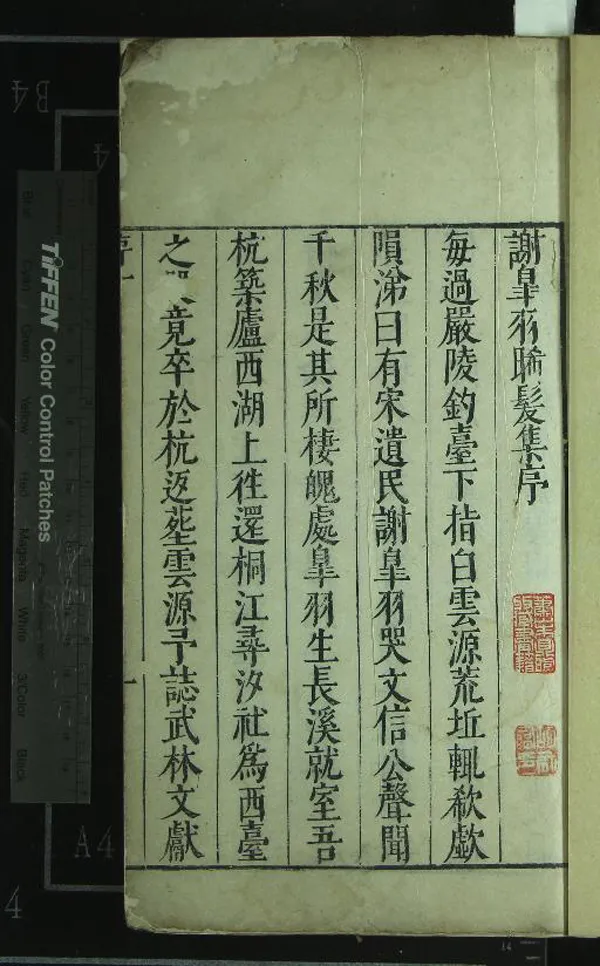 謝皐羽晞髮集序
每過嚴陵釣臺下指白雲源荒坵輒欷歔
隕涕曰有宋遺民謝皐羽哭文信公聲聞
千秋是其所棲魄處皐羽生長溪就室吾
杭築廬西湖上徃還桐江尋汐社爲西臺
之 竟卒於杭返塟雲源予誌武林文獻
序 一
TIFFEN Color Control Patches
Blue Cyan Green Yellow Red Magenta White 3/Color Black
B4
A4
4
4